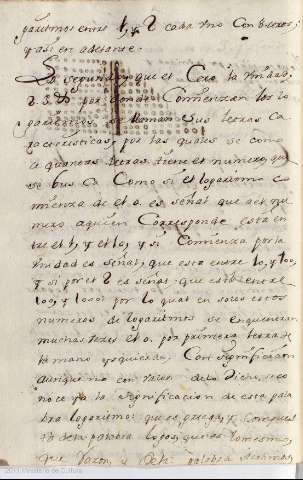 garitmos entre 1, y 2 cada vno con 8 ceros;
y asi en adelante.
Lo segundo, que el Cero la vnidad,
2. 3. &c por donde Comienzan los lo
garitmos se llaman sus letras ca
racteristicas, por las quales se cono
ce quantas letras tiene el numero, que
se bus ca Como si el logaritmo co
mienza de el 0. es señal que el nu
mero aquien Corresponde esta en
tre el 1, y el 10, y si Comienza por la
vnidad es señal, que esta entre 10, y 100,
y si por el 2 es señal que está entre
100, y 1000. por lo qual en solos estos
numeros de logaritmos se encuentran
muchas veces el 0. por primera letra
mano yzquierda. Con significacion
aunque no en valor. de lo dicho, se co
noce ya la significacion de esta pala
bra logaritmo: que es griega, y compues
ta de la palabra logos, que es lo mesmo,
que razon, y de la palabra arithmos,
2011 Ministerio de Cultura